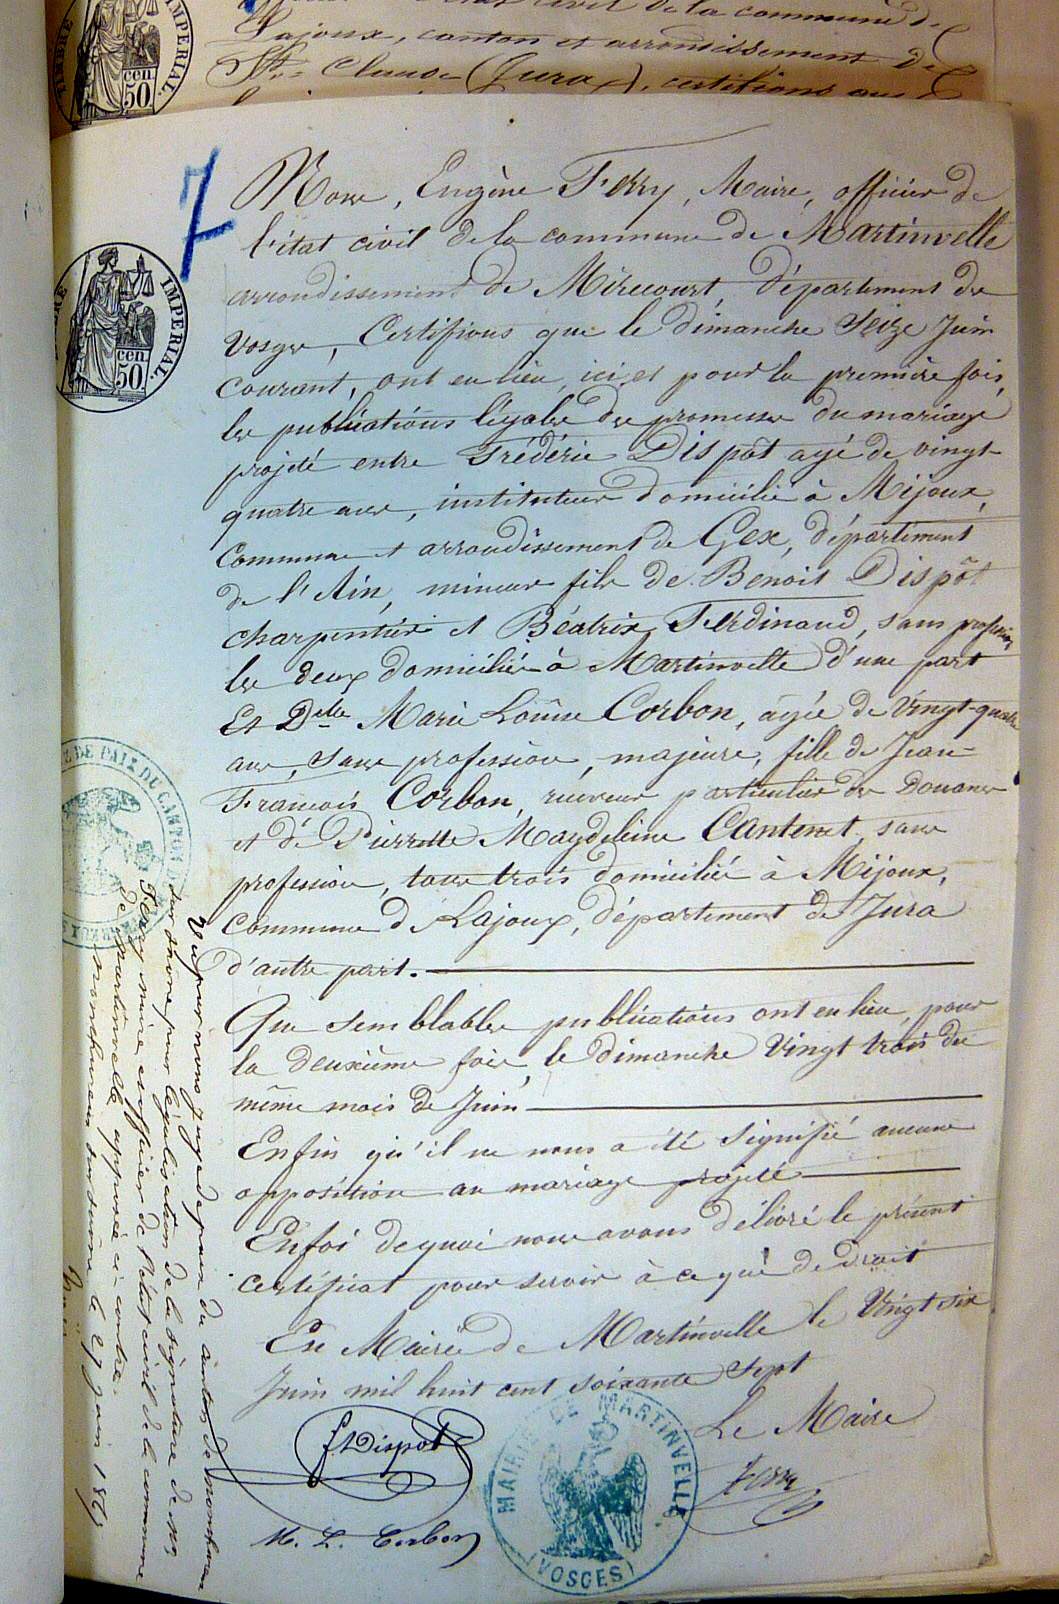 de l'état civil de la commune de
Lajoux, canton et arrondissement de
St. Claude (Jura), certifions que
TIMBRE IMPERIAL.
50 cen.
7
Nous, Eugène Ferry, Maire, officier de
l'état civil de la commune de Martinvelle
arrondissement de Mirecourt, département des
Vosges, Certifions que le dimanche Seize Juin
courant, ont eu lieu, ici et pour la première fois,
les publications légales des promesses du mariage
projeté entre Frédéric Dispôt agé de vingt-
quatre ans, instituteur domicilié à Mijoux,
commune et arrondissement de Gex, département
de l'Ain, mineur fils de Benoit Dispôt
charpentier et Béatrix Ferdinand, sans profession
les deux domiciliés à Martinvelle d'une part
Et Delle Marie Louise Corbon, âgée de Vingt-quatre
ans, sans profession, majeure, fille de Jean-
François Corbon, receveur particulier des Douanes
et de Pierrette Magdeleine Cantenet sans
profession, tous trois domiciliés à Mijoux,
commune de Lajoux, département du Jura
d'autre part.
Que semblables publications ont eu lieu, pour
la deuxième fois, le dimanche Vingt trois du
même mois de Juin
Enfin qu'il ne nous a été signifié aucune
opposition au mariage projeté
En foi de quoi nous avons délivré le présent
certificat pour servir à ce que de droit
En Mairie de Martinvelle le Vingt six
Juin mil huit cent soixante sept
Le Maire
f. Dispot
Ferry
M. L. Corbon
MAIRIE DE MARTINVELLE
(VOSGES)
IMPERIAL.
50 cen.
DE PAIX DU CANTON
Vu par nous Juge de paix du canton de monthureux
sur Saône pour légalisation de la signature de Mr
Ferry maire et officier de l'état civil de la commune
de martinvelle apposée ci-contre.
monthureux sur saône le 27 Juin 1867